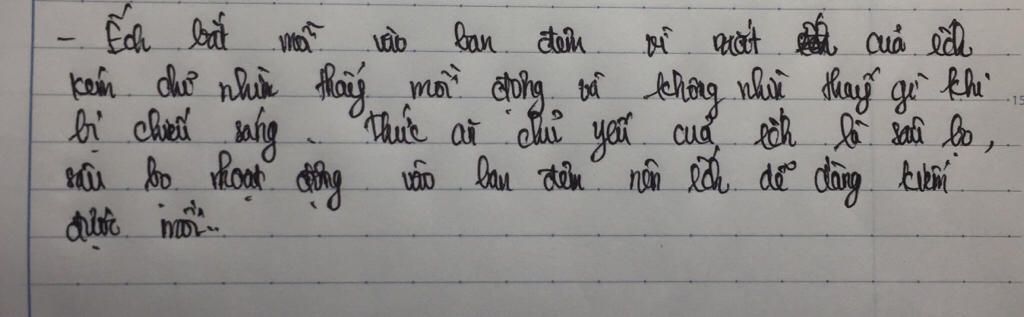 - Ếch bắt mồi vào ban đêm vì của ếch
kém chỉ nhìn thấy mồi động và không nhìn thấy gì khi
bị chiếu sáng. Thức ăn chủ yếu của ếch là sâu bọ,
sâu bọ hoạt động vào ban đêm nên ếch dễ dàng kiếm
được mồi..